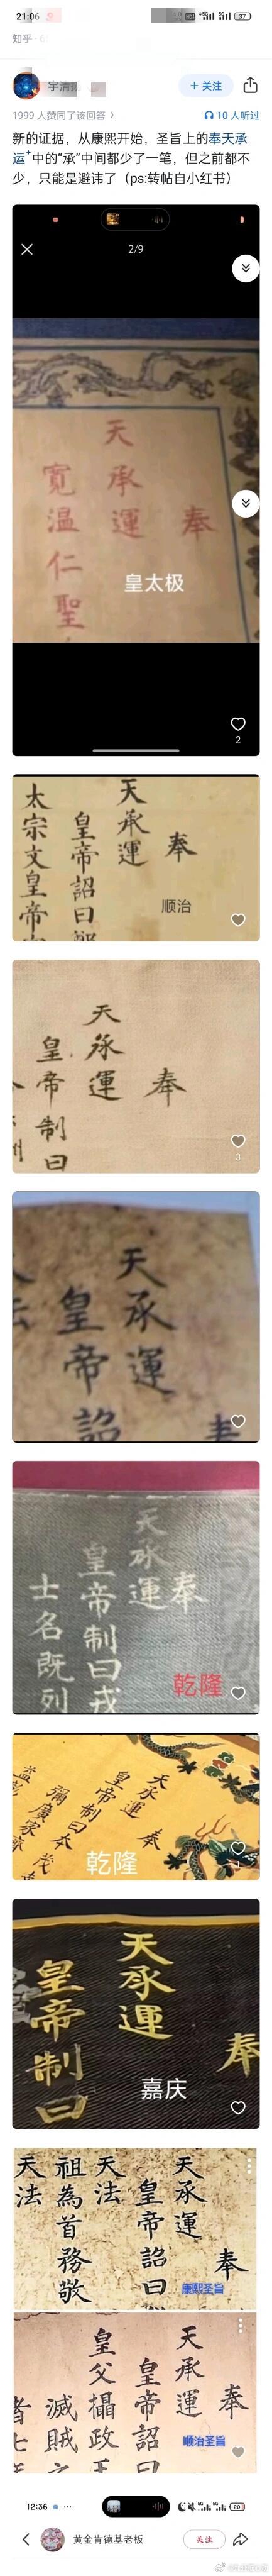 21:06
37
知乎
宇清
+ 关注
1999 人赞同了该回答 >
10 人听过
新的证据，从康熙开始，圣旨上的奉天承
运中的“承”中间都少了一笔，但之前都不
少，只能是避讳了（ps:转帖自小红书）
2/9
奉
天承運
寬温仁聖
皇太极
2
奉
天承運
皇帝詔曰
太宗文皇帝
顺治
奉
天承運
皇帝制曰
3
奉
天承運
皇帝詔
法
奉
天承運
皇帝制曰戎
士名既列
乾隆
奉
天承運
皇帝制曰
乾隆
奉
天承運
皇帝制曰
嘉庆
奉
天承運
皇帝詔曰
天法
祖為首務敬
天法
康熙圣旨
奉
天承運
皇帝詔曰
皇父攝政王
滅賊
者七
顺治圣旨
12:36
20
黄金肯德基老板
关注